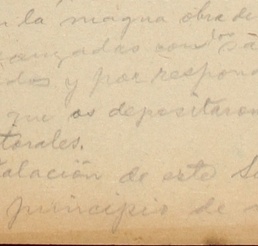 la magna obra de
con los
y por respon
que os depositaron
torales.
talación de este Su
principio de